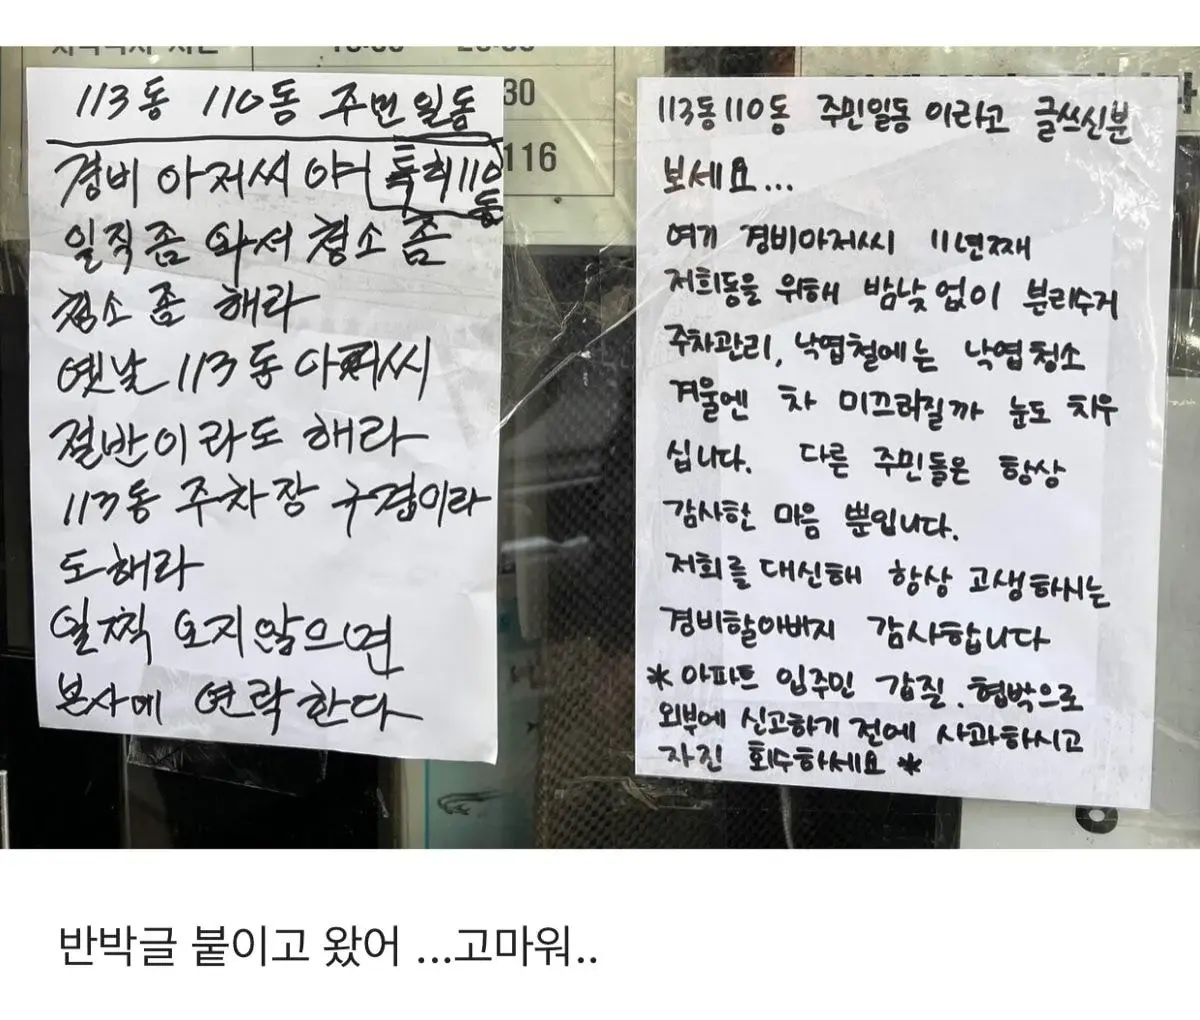 30
116
113동 110동 주민일동
경비 아저씨 야 특히 110동
일직 좀 와서 청소 좀
청소 좀 해라
옛날 113동 아저씨
절반이라도 해라
113동 주차장 구경이라
도 해라
일찍 오지않으면
본사에 연락한다
113동110동 주민일동이라고 글쓰신분
보세요...
여기 경비아저씨 11년째
저희동을 위해 밤낮없이 분리수거
주차관리, 낙엽철에는 낙엽청소
겨울엔 차 미끄러질까 눈도 치우
십니다. 다른 주민들은 항상
감사한 마음 뿐입니다.
저희를 대신해 항상 고생하시는
경비할아버지 감사합니다
* 아파트 입주민 갑질. 협박으로
외부에 신고하기 전에 사과하시고
자진 회수하세요 *
반박글 붙이고 왔어 ...고마워..